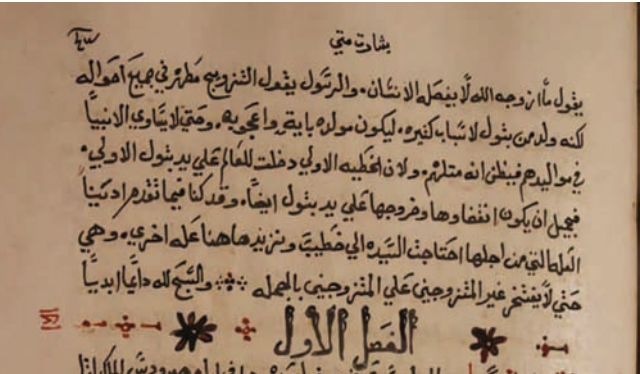 بشارت متي
يقول ماا زوجه الله لا يفصله الانسان. والرسول يقول التزويج مطهر في جميع احواله
لكنه ولد من بتول لاسباب كثيره. ليكون مولده باية واعجوبه. وحتي لا يساوي الانبيا
في مواليدهم فيظن انه مثلهم. ولان الخطيه الاولي دخلت للعالم علي يد بتول الاولي.
فيجمل ان يكون انتفاوها وخروجها علي يد بتول ايضا. وقد كنا فيما تقدم ادينا
العله التي من اجلها احتاجت السيده الي خطيب ونزيدها هنا عله اخري. وهي
حتي لا يفتخر غير المتزوجين علي المتزوجين بالجمله والسبح لله دايما ابديا
الفصل الاول